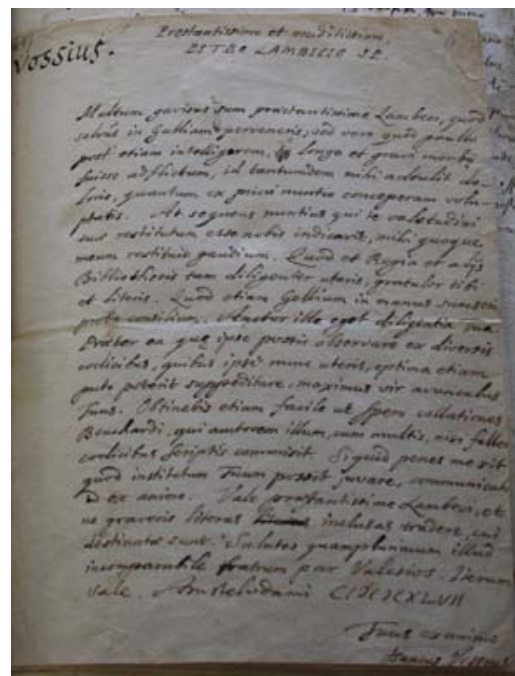 Vossius.
Prestantissimo et eruditissimo
PETRO LAMBECIO S.P.
Multum gavisus sum præstantissime Lambeci, quod
salvus in Galliam perveneris, sed vero quod paullo
post etiam intelligerem, longo et gravi morbo
fuisse adflictum, id tantundem mihi attulit do-
loris, quantum ex priori nuntio conceperam volu-
ptatis. At sequens nuntius qui te valetudini
tuæ restitutum esse nobis indicavit, mihi quoque
meum restituit gaudium. Quod et Regia et aliis
Bibliothecis tam diligenter uteris, gratulor tibi
et literis. Quod etiam Gellium in manus sumseris
probo consilium. Auctor ille eget diligentia tua
Præter ea quæ ipse possis observare ex diversis
codicibus, quibus ipse nunc uteris, optima etiam
puto poterit suppeditare, maximus vir avunculus
Tuus. Obtinebis etiam facile ut spero collationes
Bouchardi, qui autorem illum, cum multis, nisi fallor
codicibus scriptis commisit. Siquid penes me sit
quod institutum Tuum possit juvare, communicabo
ex animo. Vale præstantissime Lambeci, et
ne graveris literas inclusas tradere, cui
destinatæ sunt. Salutes quamplurimum illud
incomparabile fratrum par Valesios. Iterum
vale. Amstelodami CIↃIↃCXLVII
Tuus ex animo
Isaacus Vossius